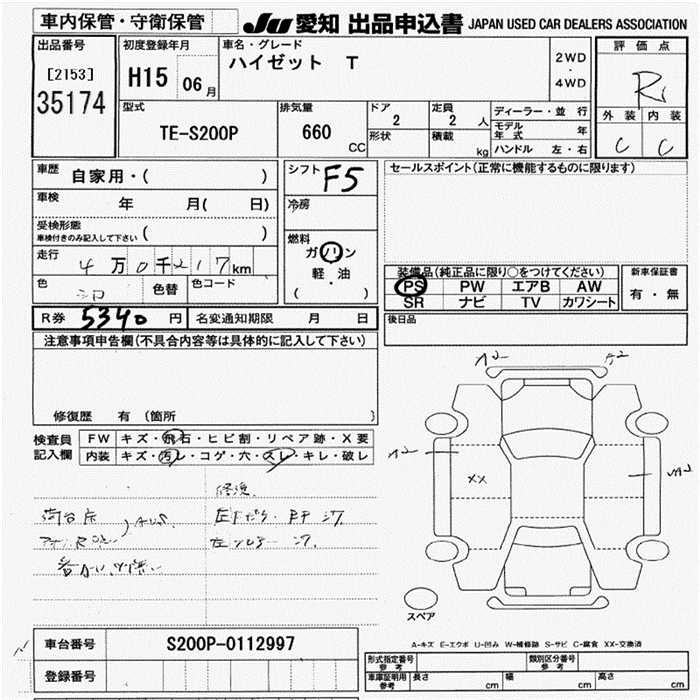 車内保管・守衛保管
JU 愛知 出品申込書 JAPAN USED CAR DEALERS ASSOCIATION
出品番号
[2153]
35174
初度登録年月
H15 06月
車名・グレード
ハイゼット T
2WD
・
4WD
評価点
R1
外装 内装
C C
型式
TE-S200P
排気量
660
CC
ドア
2
形状
定員
2 人
積載
kg
ディーラー・並行
モデル年式 年
ハンドル 左・右
車歴
自家用・( )
車検
年 月( 日)
受検形態
車検付きのみ記入して下さい ( )
走行
4万0千217km
色 シロ 色替 色コード
シフト F5
冷房
燃料
ガソリン
軽・油
( )
セールスポイント(正常に機能するものに限ります)
装備品(純正品に限り○をつけてください)
PS PW エアB AW
SR ナビ TV カワシート
新車保証書
有・無
R券 5340 円 名変通知期限 月 日
後日品
注意事項申告欄(不具合内容等は具体的に記入して下さい)
修復歴 有 (箇所 )
検査員
記入欄
FW キズ・飛石・ヒビ割・リペア跡・X要
内装 キズ・汚レ・コゲ・穴・スレ・キレ・破レ
A2 A2
A2
XX
スペア
A-キズ E-エクボ U-凹み W-補修跡 S-サビ C-腐食 XX-交換済
車台番号 S200P-0112997
登録番号
形式指定番号
参考
類別区分番号
参考
車庫証明用
参考
長さ cm 幅 cm 高さ cm